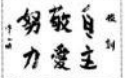 校訓
自主
敬愛
努力